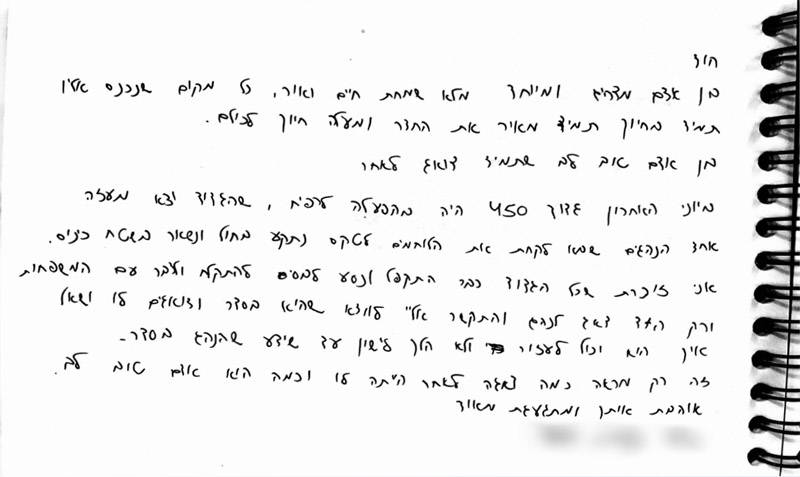 הוד
בן אדם מצחיק ומיוחד מלא שמחת חיים ואור, כל מקום שנכנס אליו
תמיד בחיוך תמיד מאיר את החדר ומעלה חיוך לכולם.
בן אדם טוב לב שתמיד דואג לאחר
ביוני האחרון גדוד 450 היה בהפעלה לרפיח, שהגדוד יצא מעזה
אחד הנהגים שבא לקחת את הלוחמים לטקס נתקע בחול ונשאר בשטח כינוס.
אני זוכרת שכל הגדוד כבר התקפל ונסע לבסיס להתקלח ולדבר עם המשפחות
ורק הוד דאג לנהג והתקשר אליי לוודא שהוא בסדר ודואגים לו ושאל
איך הוא יכול לעזור ולא הלך לישון עד שידע שהנהג בסדר.
זה רק מראה כמה דאגה לאחר הייתה לו וכמה הוא אדם טוב לב.
אוהבת אותך ומתגעגעת מאוד